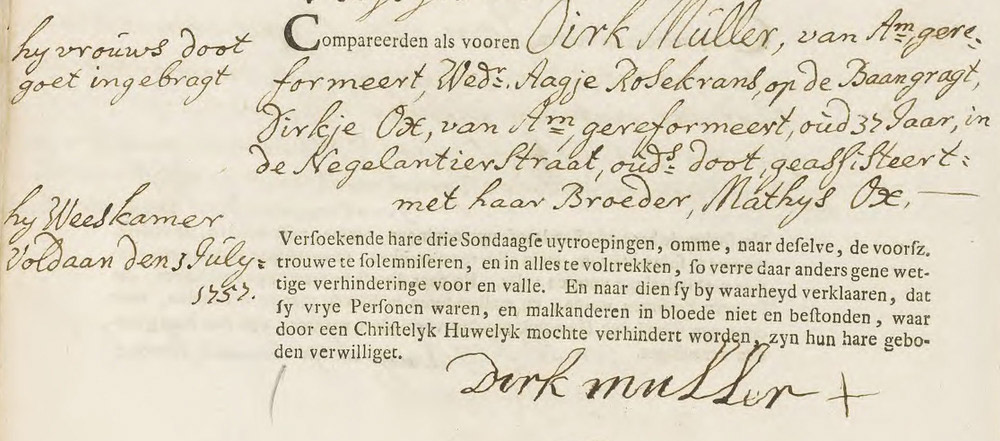 hy vrouws doot
goet ingebragt
Compareerden als vooren Dirk Müller, van Am, gere-
formeert, Wedr. Aagje Rosekrans, op de Baangragt,
Dirkje Ox, van Am, gereformeert, oud 37 Jaar, in
de Negelantierstraat, ouds doot, geassisteert
met haar Broeder, Mathys Ox,
hy Weeskamer
Voldaan den 1 July
1757.
Versoekende hare drie Sondaagse uytroepingen, omme, naar deselve, de voorsz.
trouwe te solemniseren, en in alles te voltrekken, so verre daar anders gene wet-
tige verhinderinge voor en valle. En naar dien sy by waarheyd verklaaren, dat
sy vrye Personen waren, en malkanderen in bloede niet en bestonden, waar
door een Christelyk Huwelyk mochte verhindert worden, zyn hun hare gebo-
den verwilliget.
Dirk muller +